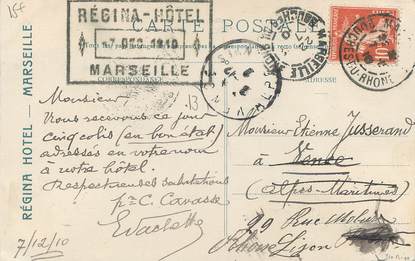 15€
RÉGINA-HÔTEL
7 DEC 1910
MARSEILLE
CARTE POSTALE
CORRESPONDANCE
RÉGINA HOTEL — MARSEILLE
MARSEILLE
BOUCHES-DU-RHONE
10
VENCE
ALP
13
Monsieur
Nous recevons ce jour
cinq colis (en bon état)
adressés en votre nom
à notre hôtel.
Respectueuses salutations
pr C. Cavasse
7/12/10
Monsieur Étienne Jusserand
à Vence
(Alpes-Maritimes)
29 Rue Molière
Rhône Lyon